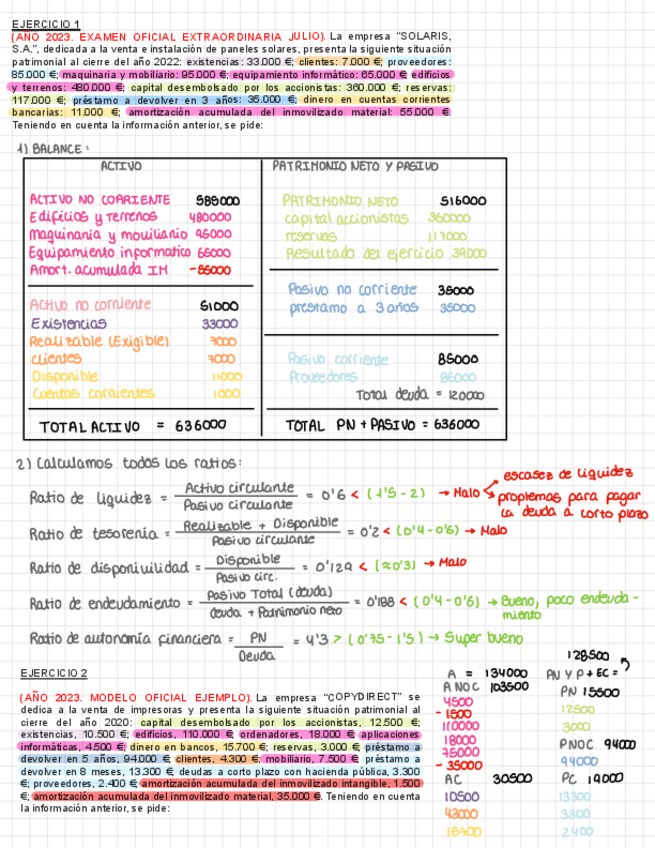 EJERCICIO 1
(AÑO 2023. EXAMEN OFICIAL EXTRAORDINARIA JULIO). La empresa "SOLARIS,
S.A.", dedicada a la venta e instalación de paneles solares, presenta la siguiente situación
patrimonial al cierre del año 2022: existencias: 33.000 €; clientes: 7.000 €; proveedores:
85.000 €; maquinaria y mobiliario: 95.000 €; equipamiento informático: 65.000 €; edificios
y terrenos: 480.000 €; capital desembolsado por los accionistas: 360.000 €; reservas:
117.000 €; préstamo a devolver en 3 años: 35.000 €; dinero en cuentas corrientes
bancarias: 11.000 €; amortización acumulada del inmovilizado material: 55.000 €.
Teniendo en cuenta la información anterior, se pide:
1) BALANCE:
ACTIVO PATRIMONIO NETO Y PASIVO
ACTIVO NO CORRIENTE 585000 PATRIMONIO NETO 516000
Edificios y Terrenos 480000 capital accionistas 360000
Maquinaria y movilario 95000 reservas 117000
Equipamiento informatico 65000 Resultado del ejercicio 39000
Amort. acumulada IM -55000
Pasivo no corriente 35000
Activo no corriente 51000 prestamo a 3 años 35000
Existencias 33000
Realizable (Exigible) 7000
clientes 7000 Pasivo corriente 85000
Disponible 11000 Proveedores 85000
Cuentas corrientes 1000 Total deuda = 120000
TOTAL ACTIVO = 636000 TOTAL PN + PASIVO = 636000
2) Calculamos todos los ratios:
Ratio de liquidez = Activo circulante / Pasivo circulante = 0'6 < (1'5 - 2) → Malo escasez de liquidez
problemas para pagar
la deuda a corto plazo
Ratio de tesorería = Realizable + Disponible / Pasivo circulante = 0'2 < (0'4 - 0'6) → Malo
Ratio de disponiuilidad = Disponible / Pasivo circ. = 0'129 < (≈0'3) → Malo
Ratio de endeudamiento = Pasivo Total (deuda) / deuda + Patrimonio neto = 0'188 < (0'4 - 0'6) → Bueno, poco endeuda-
miento
Ratio de autonomía financiera = PN / Deuda = 4'3 > (0'75 - 1'5) → Super bueno
EJERCICIO 2
(AÑO 2023. MODELO OFICIAL EJEMPLO). La empresa "COPYDIRECT" se
dedica a la venta de impresoras y presenta la siguiente situación patrimonial al
cierre del año 2020: capital desembolsado por los accionistas, 12.500 €;
existencias, 10.500 €; edificios, 110.000 €; ordenadores, 18.000 €; aplicaciones
informáticas, 4.500 €; dinero en bancos, 15.700 €; reservas, 3.000 €; préstamo a
devolver en 5 años, 94.000 €; clientes, 4.300 €; mobiliario, 7.500 €; préstamo a
devolver en 8 meses, 13.300 €; deudas a corto plazo con hacienda pública, 3.300
€; proveedores, 2.400 €; amortización acumulada del inmovilizado intangible, 1.500
€; amortización acumulada del inmovilizado material, 35.000 €. Teniendo en cuenta
la información anterior, se pide:
128500
A = 134000 PN Y P + EC =
A NOC 103500 PN 15500
4500 12500
- 1500 3000
110000
18000 PNOC 94000
75000 94000
- 35000
AC 30500 PC 19000
10500 13300
43000 3300
15700 2400